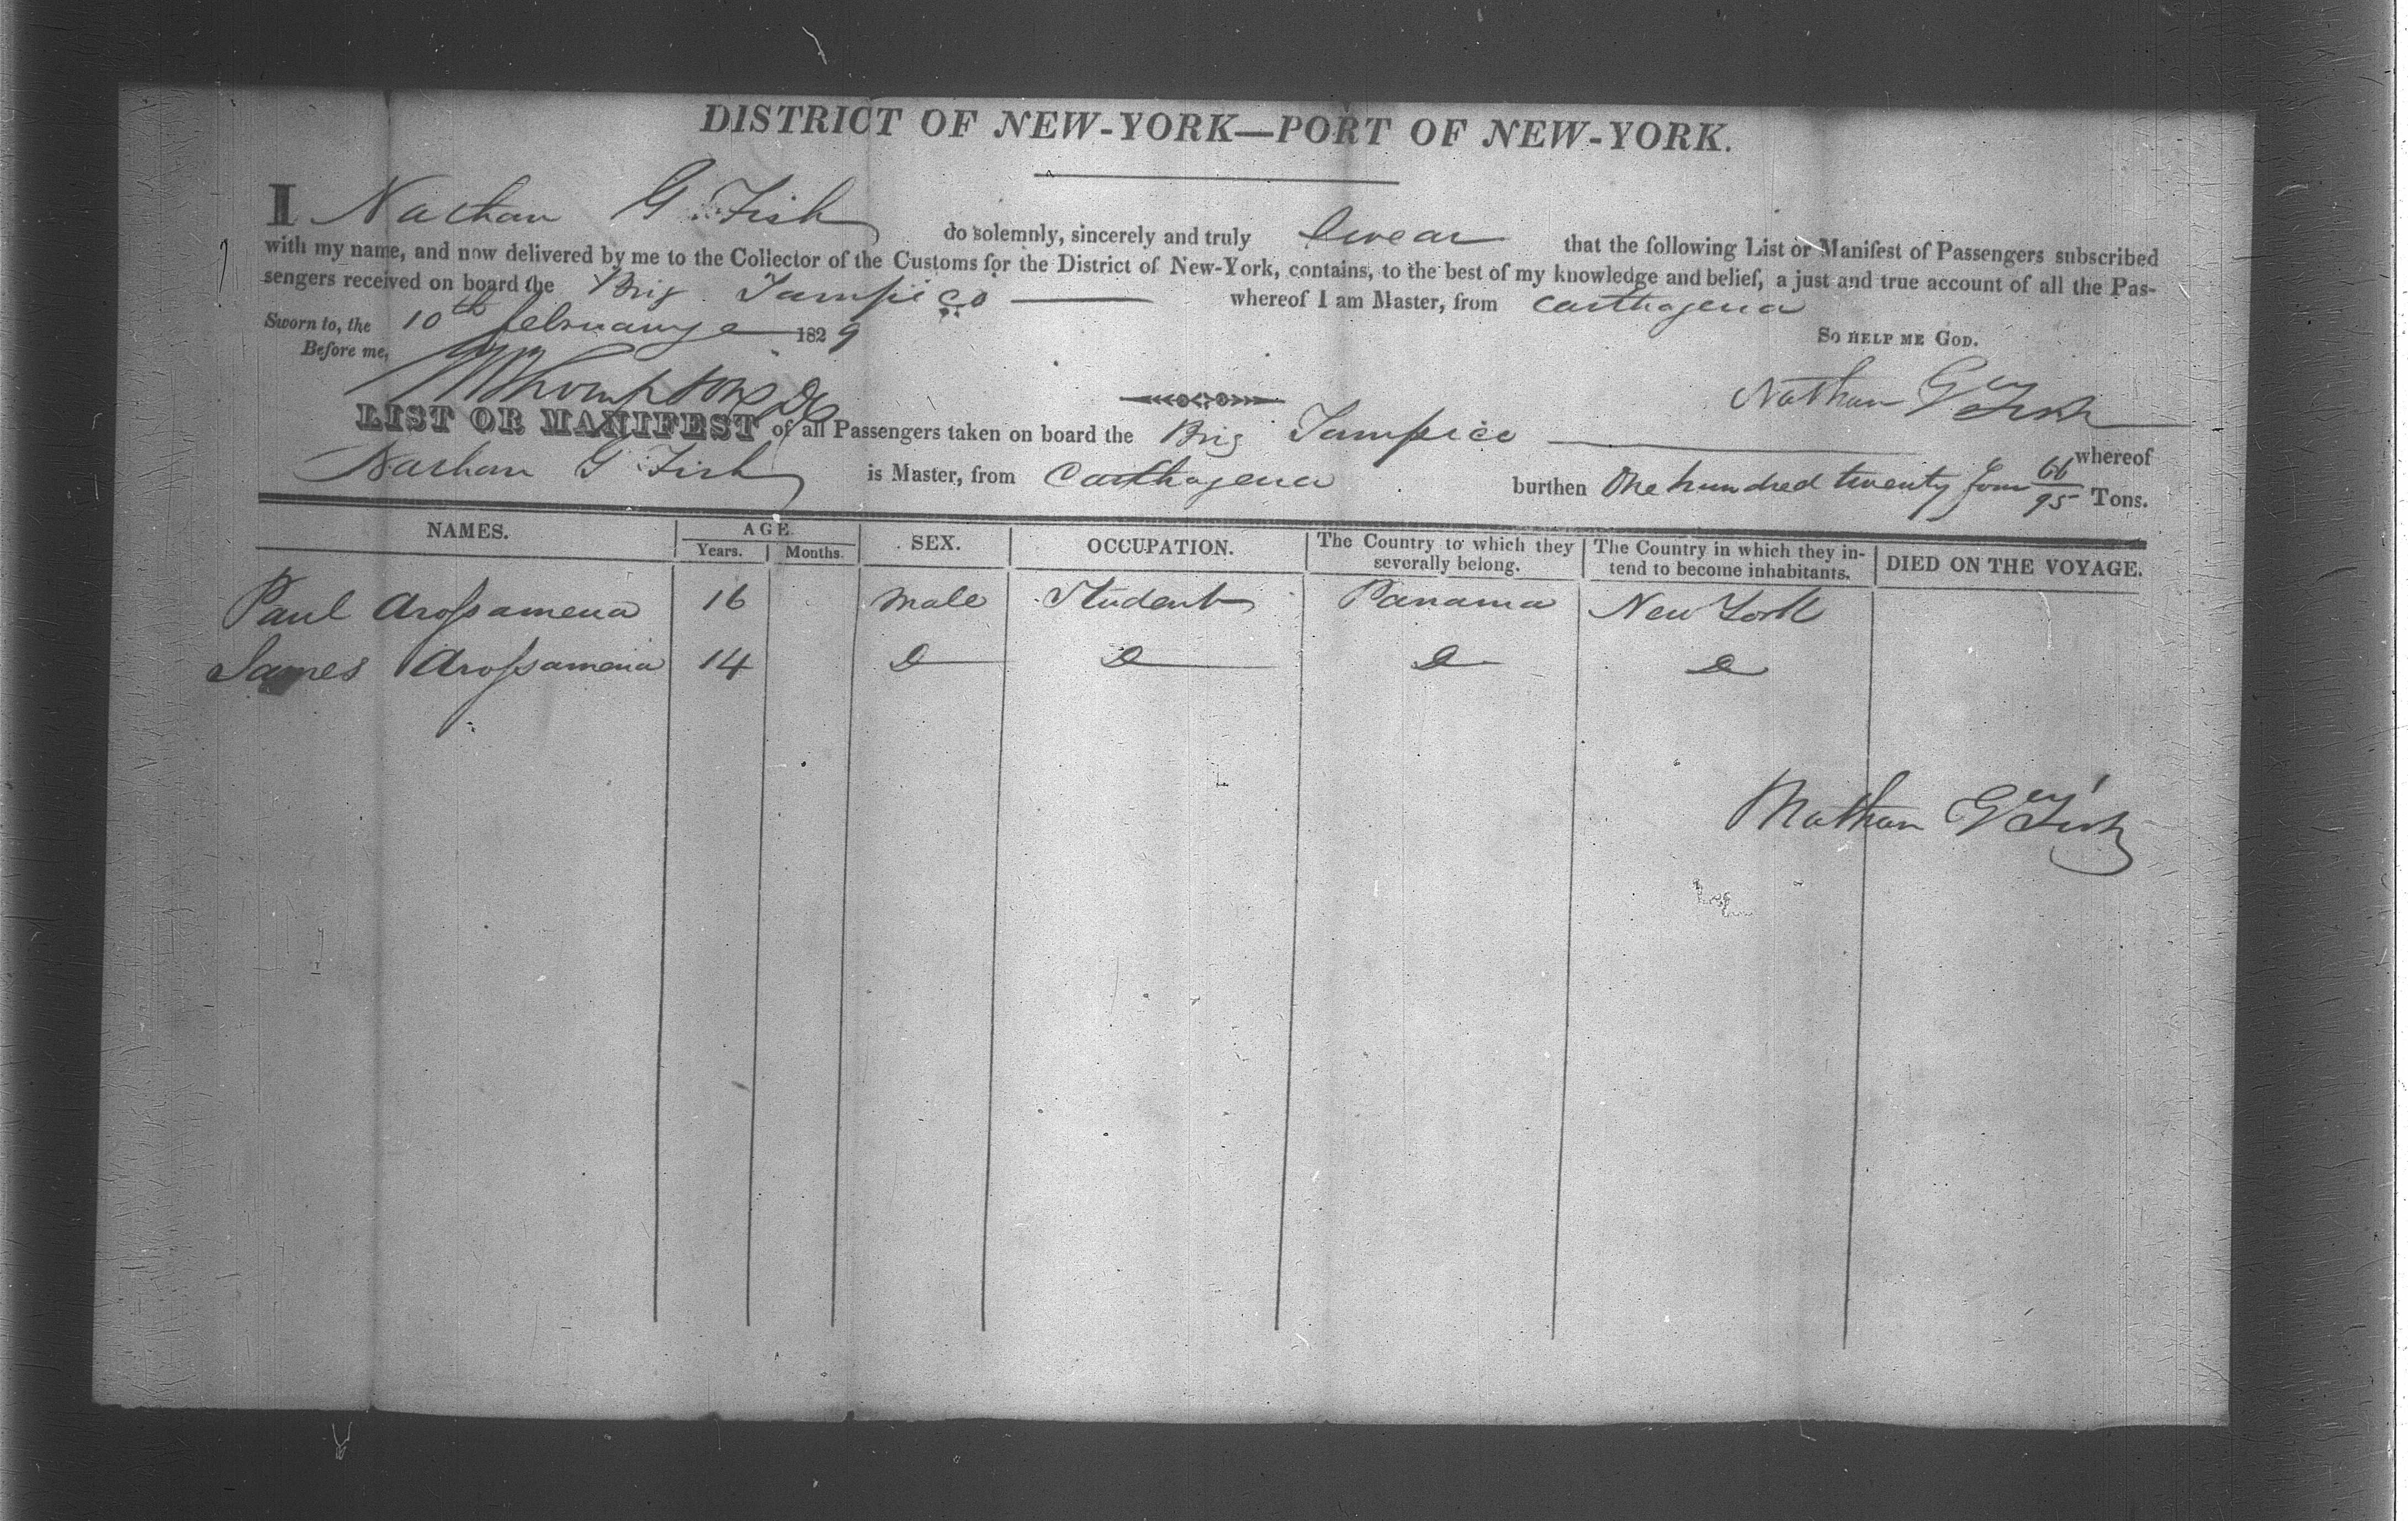 DISTRICT OF NEW-YORK—PORT OF NEW-YORK.
I Nathan G. Fish do solemnly, sincerely and truly Swear that the following List or Manifest of Passengers subscribed
with my name, and now delivered by me to the Collector of the Customs for the District of New-York, contains, to the best of my knowledge and belief, a just and true account of all the Pas-
sengers received on board the Brig Tampico whereof I am Master, from Carthagena
Sworn to, the 10th february 1829
So HELP ME GOD.
Before me,
Nathan Gy Fish
LIST OR MANIFEST of all Passengers taken on board the Brig Tampico whereof
Nathan G Fish is Master, from Carthagena burthen One hundred twenty four 66/95 Tons.
NAMES. AGE. SEX. OCCUPATION. The Country to which they severally belong. The Country in which they in-tend to become inhabitants. DIED ON THE VOYAGE.
Years. Months.
Paul Arossamena 16 male Student Panama New York
James Arossamena 14 D D D D
Nathan Gy Fish